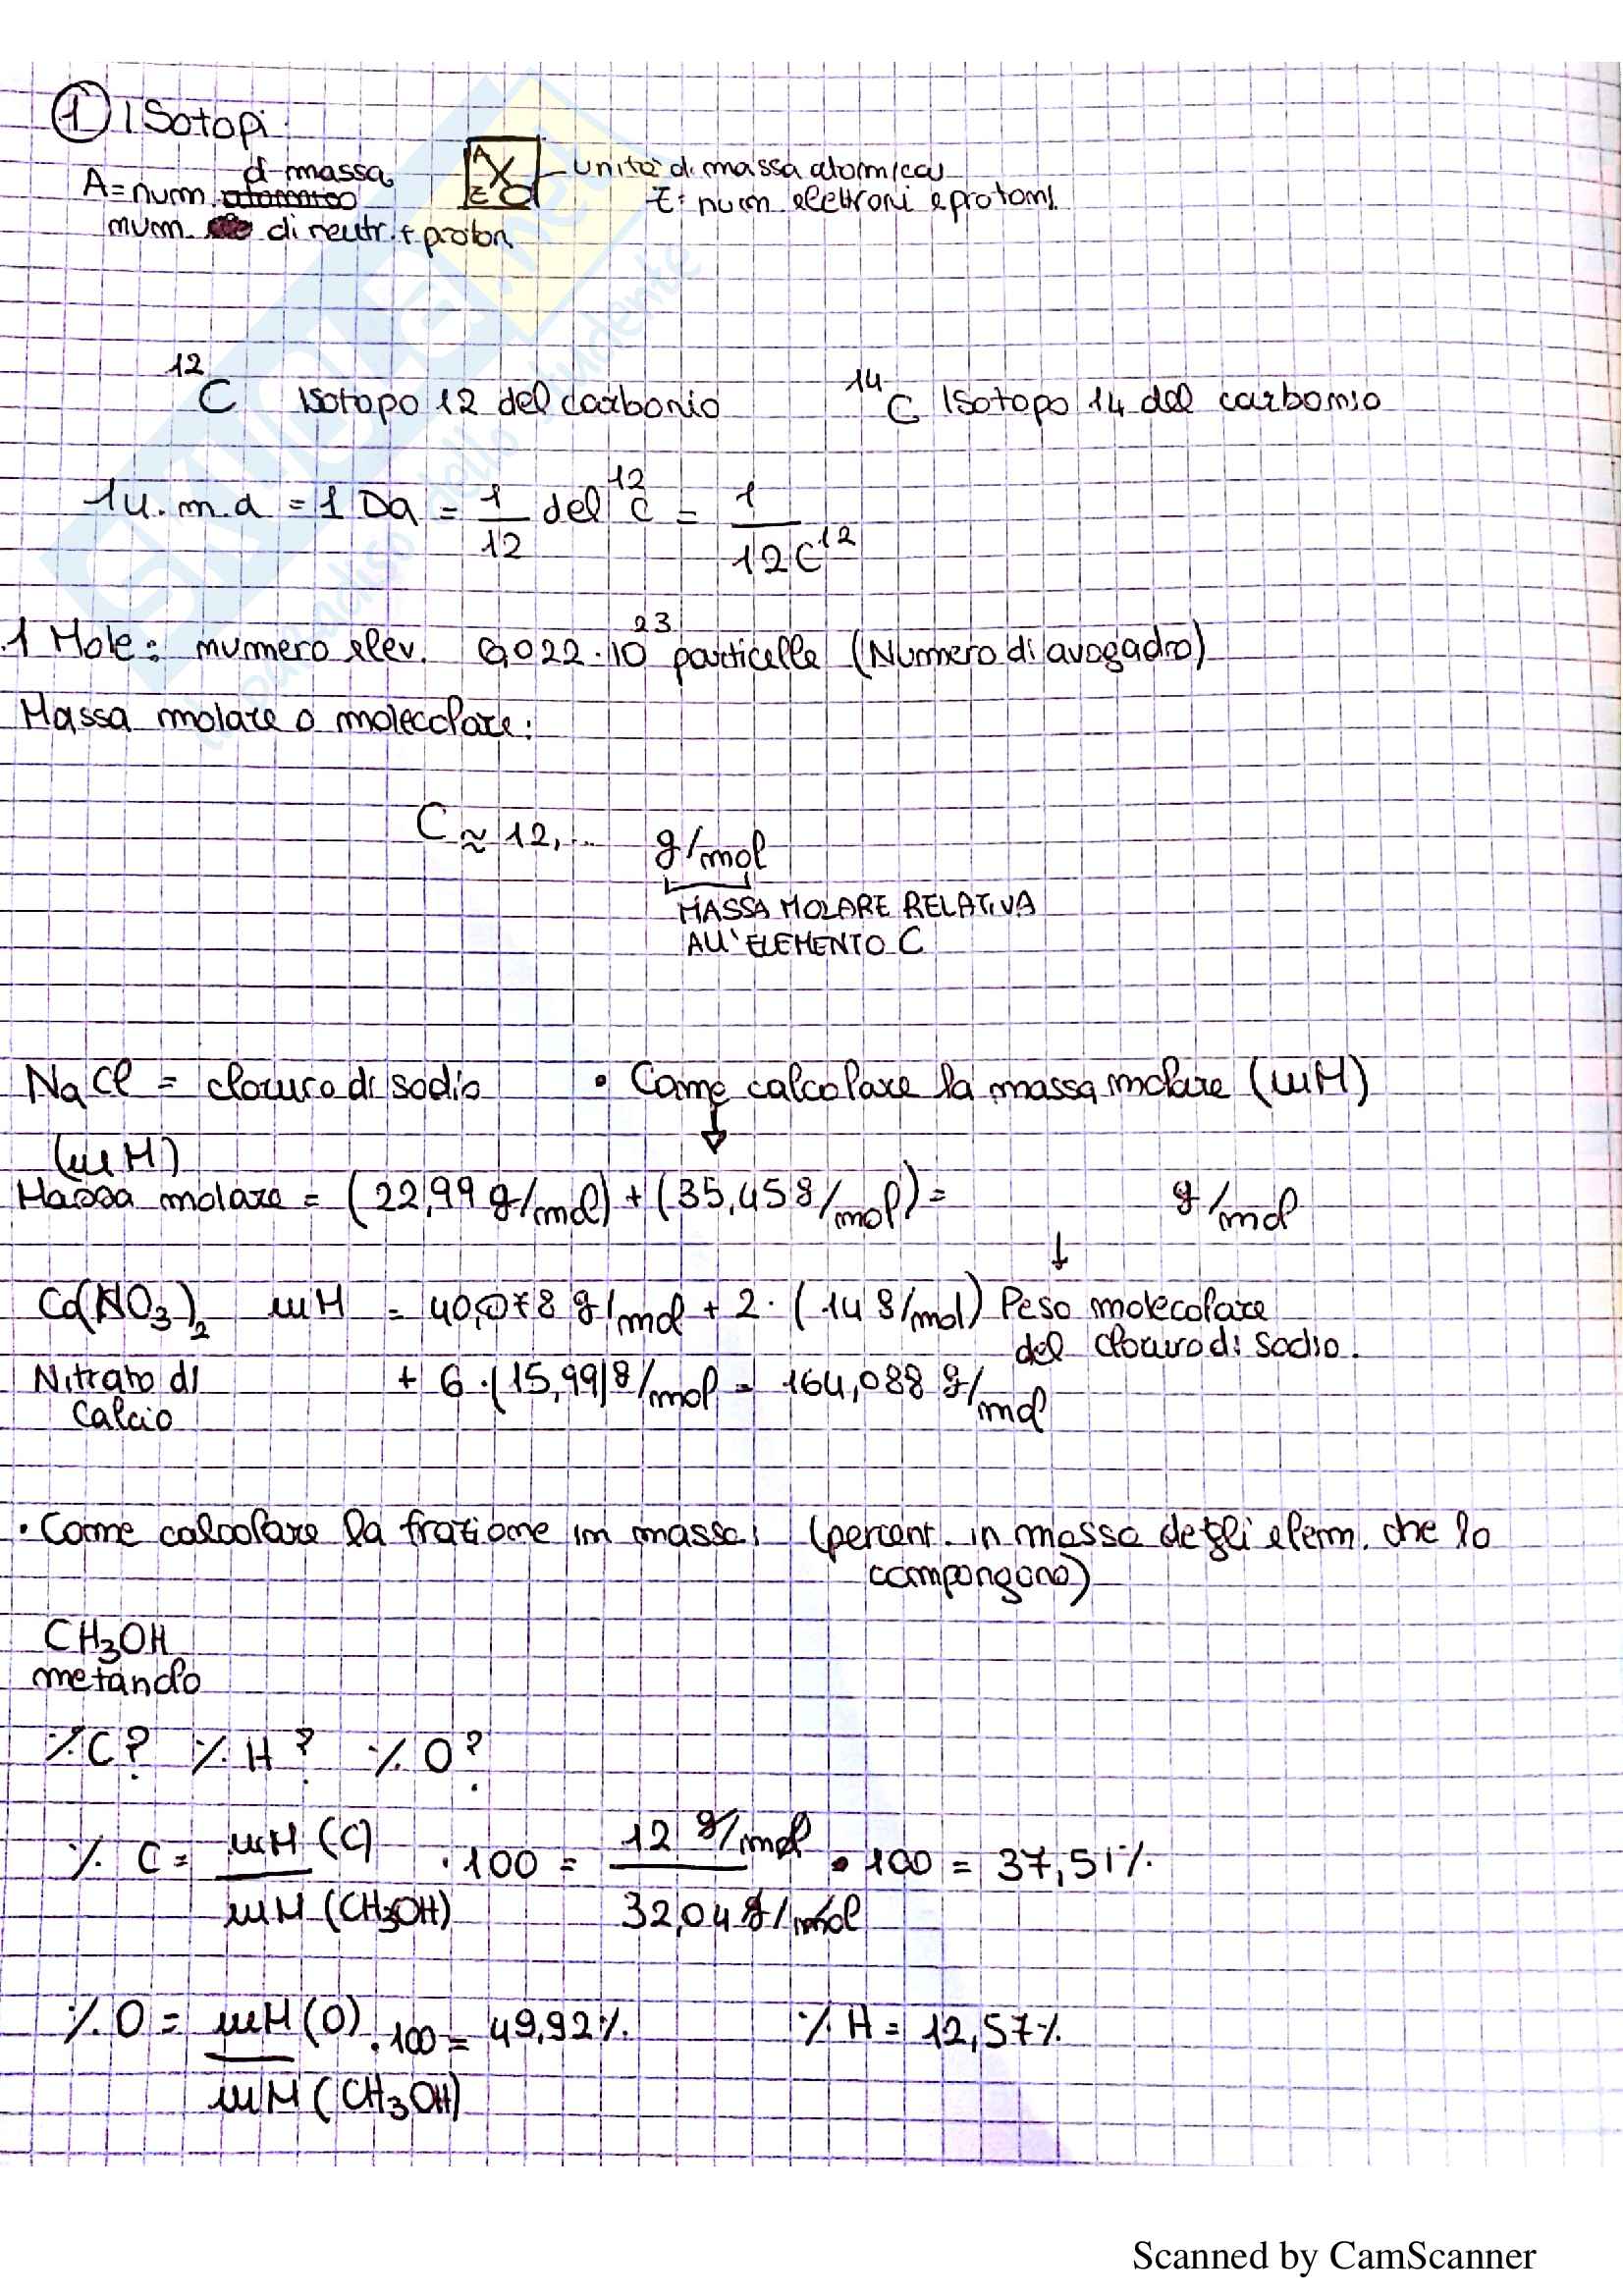 ① ISotopi
A = num. di massa
num. di neutr. + proton
A X Z unità di massa atomica
Z = num elettroni e protoni
¹²C Isotopo 12 del carbonio
¹⁴C Isotopo 14 del carbonio
1 u.m.a = 1 Da = 1/12 del ¹²C = 1/12C¹²
1 Mole: numero elev. 6,022·10²³ particelle (Numero di avogadro)
Massa molare o molecolare:
C ≈ 12,... g/mol
MASSA MOLARE RELATIVA
ALL' ELEMENTO C
NaCl = cloruro di sodio
• Come calcolare la massa molare (mM)
↓
(mM)
Massa molare = (22,99 g/mol) + (35,45 g/mol) = g/mol
↓
Peso molecolare
del cloruro di sodio.
Ca(NO₃)₂ mM = 40,078 g/mol + 2·(14 g/mol)
Nitrato di
Calcio
+ 6·(15,99) g/mol = 164,088 g/mol
• Come calcolare la frazione in massa: (percent. in massa degli elem. che lo
compongono)
CH₃OH
metanolo
% C? % H? % O?
% C = mM (C) / mM (CH₃OH) · 100 = 12 g/mol / 32,04 g/mol • 100 = 37,51%
% O = mM (O) / mM (CH₃OH) · 100 = 49,92%
% H = 12,57%
SKUOLA.net
il paradiso dello studente
Scanned by CamScanner